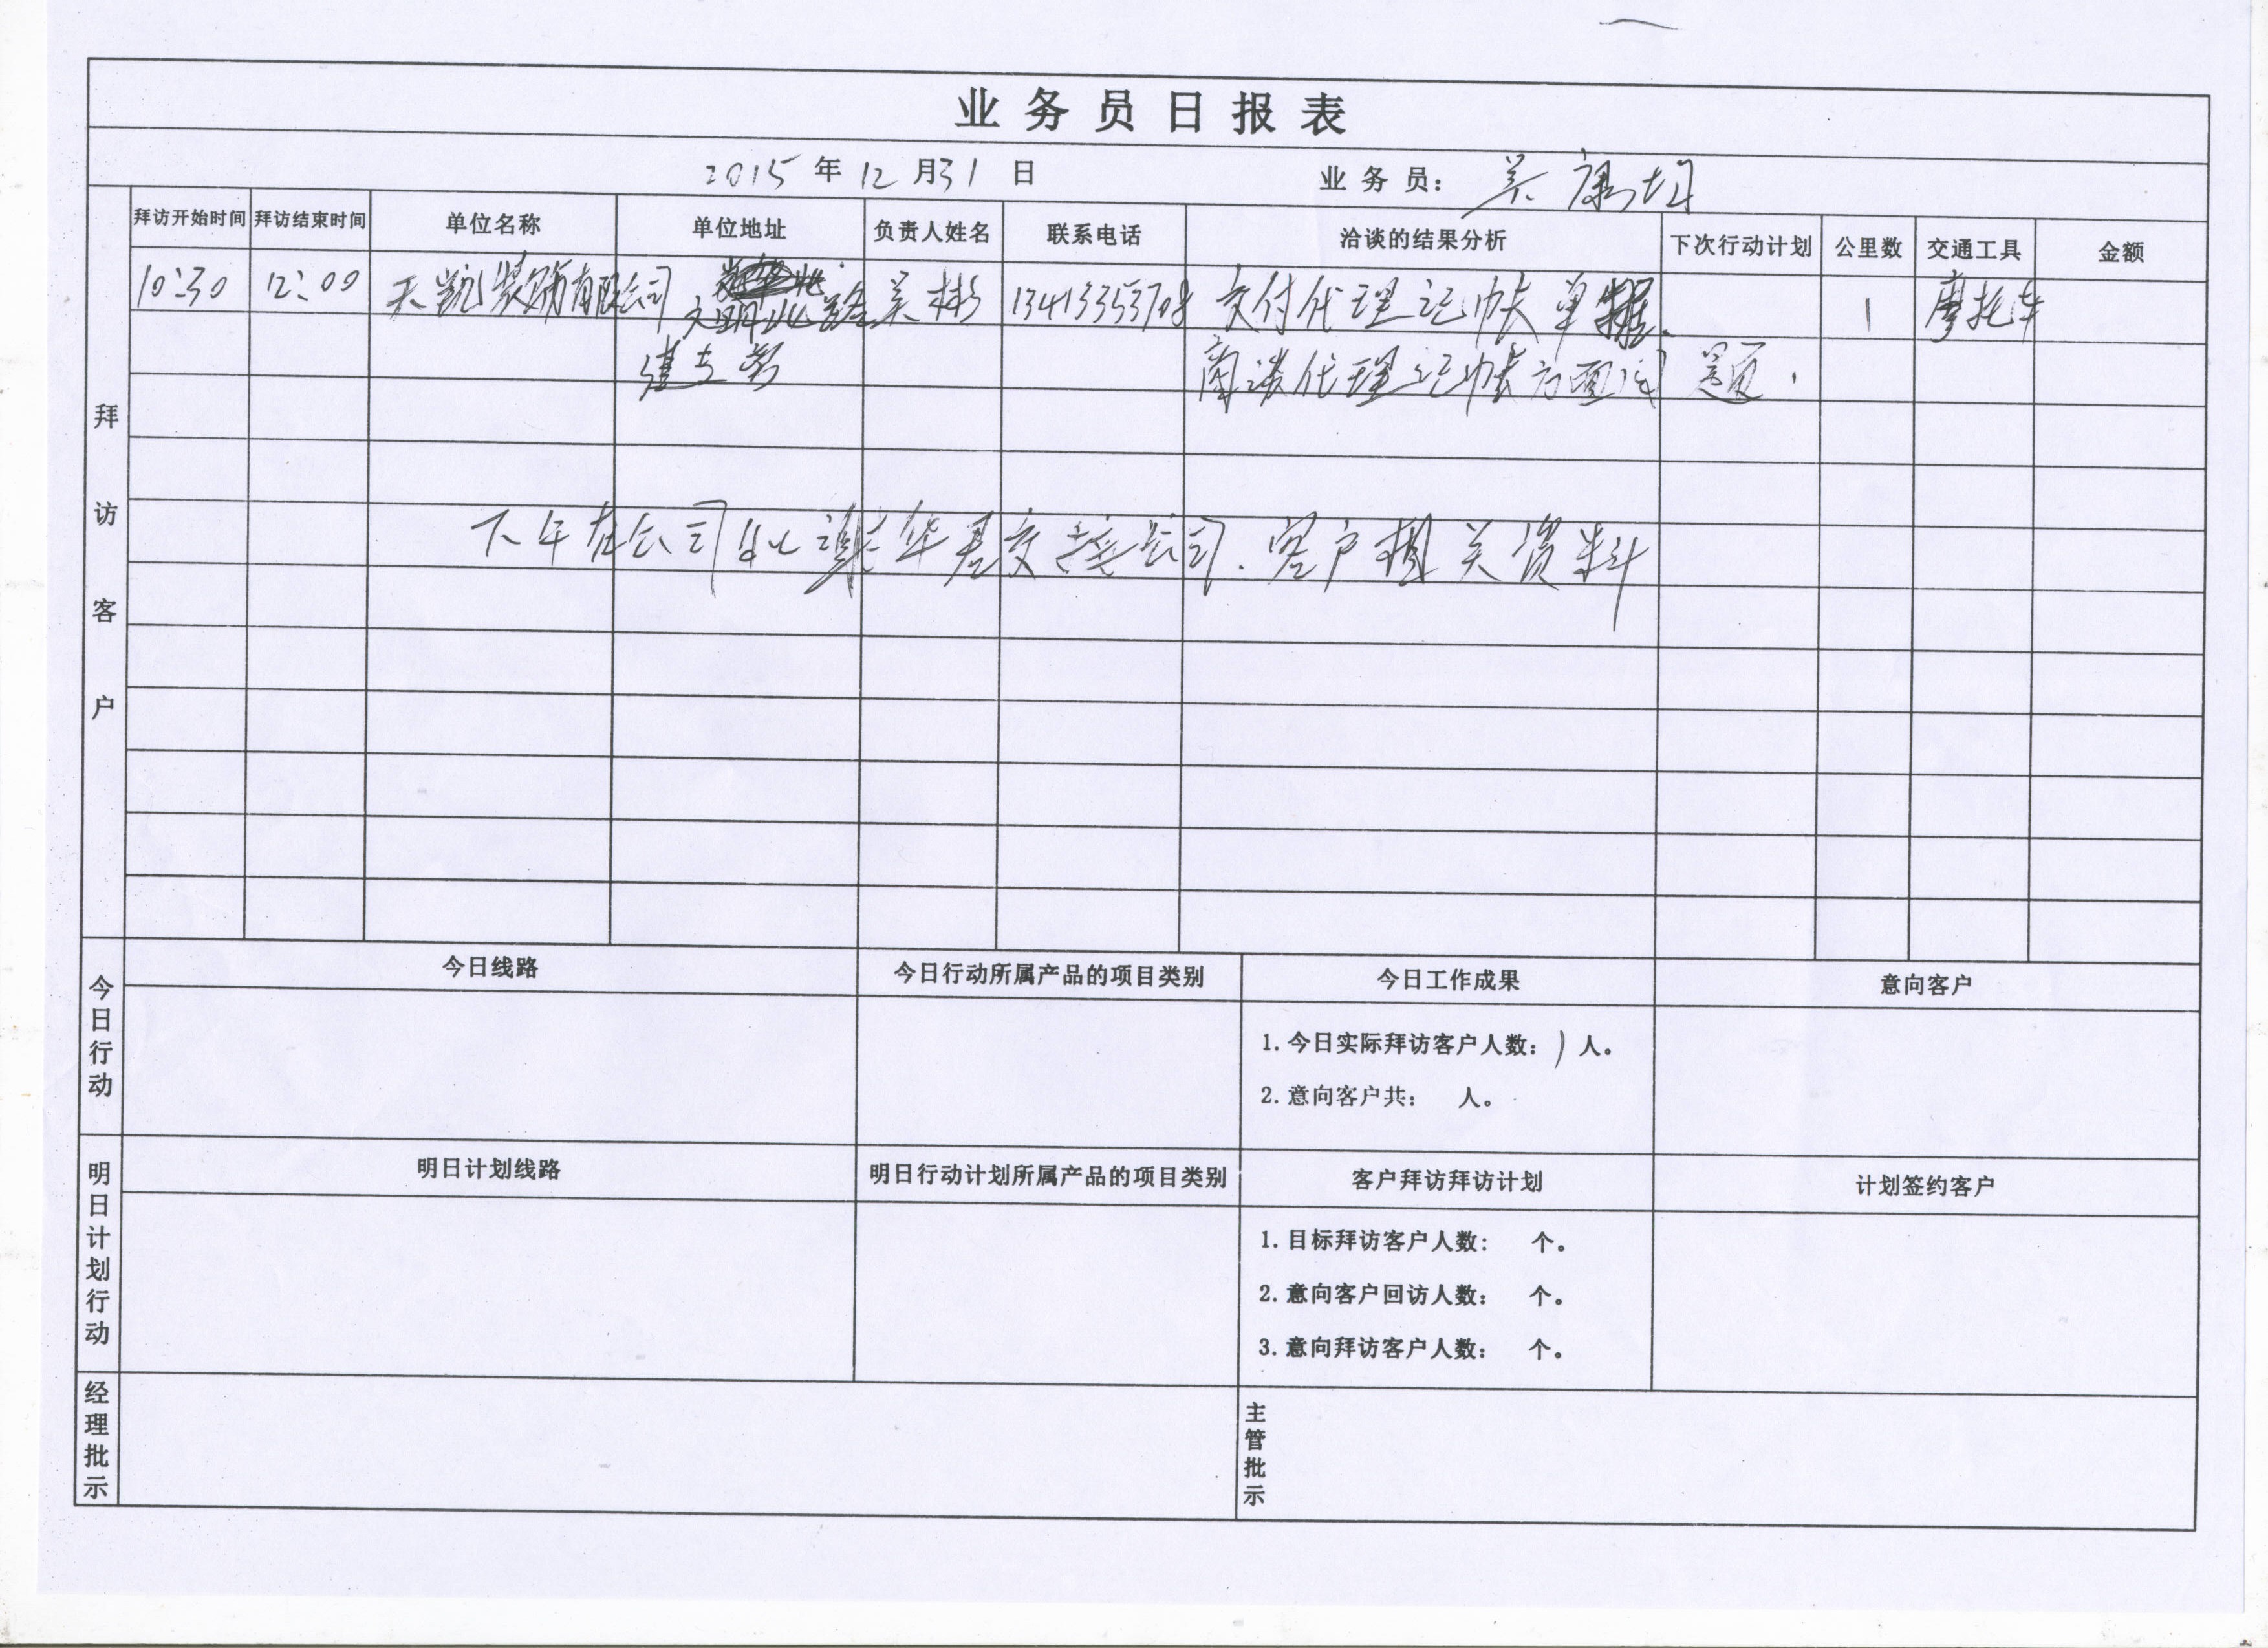 业务员日报表
2015 年 12 月 31 日 业务员: 吴
拜访客户
拜访开始时间 拜访结束时间 单位名称 单位地址 负责人姓名 联系电话 洽谈的结果分析 下次行动计划 公里数 交通工具 金额
10:30 12:00 天凯装饰有限公司 文明北路 吴彬 13413353708 交付代理记帐单据. 1 摩托车
商谈代理记帐方面问题.
下午在公司与谢华基交接公司.客户相关资料
今日行动
今日线路 今日行动所属产品的项目类别 今日工作成果 意向客户
1.今日实际拜访客户人数: 1 人。
2.意向客户共: 人。
明日计划行动
明日计划线路 明日行动计划所属产品的项目类别 客户拜访拜访计划 计划签约客户
1.目标拜访客户人数: 个。
2.意向客户回访人数: 个。
3.意向拜访客户人数: 个。
经理批示 主管批示